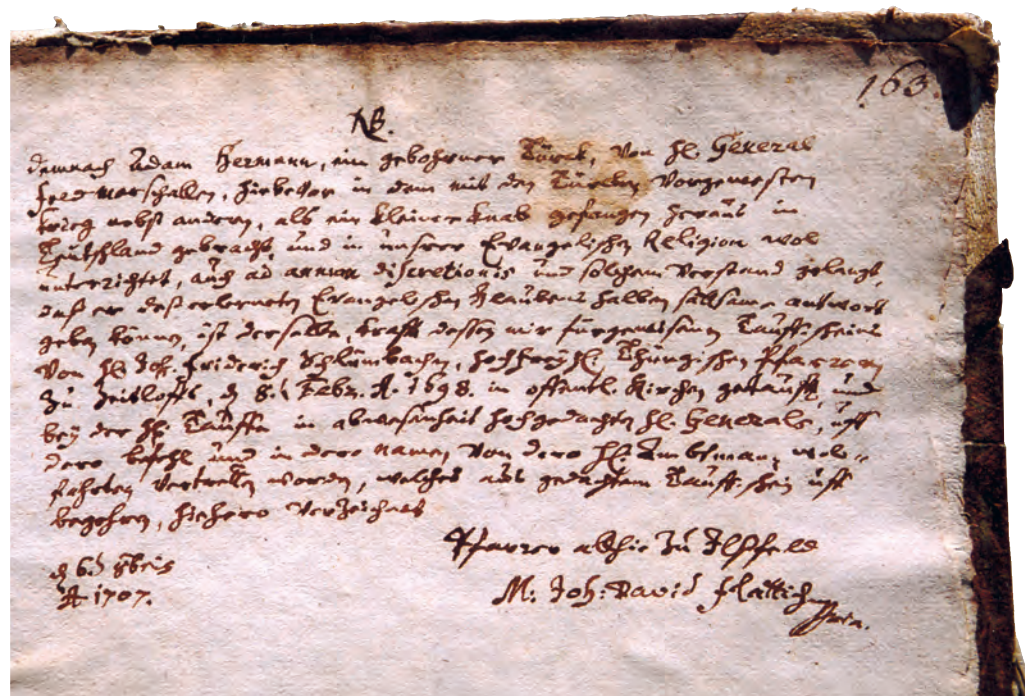 163.
NB.
Demnach Adam Hermann, ein gebohrner Türck, von H. General
Feldmarschallen, hiebevor in dem mit den Türcken vorgewesten
Krieg nebst andern, als ein kleiner Knab gefangen heraus in
Teutschland gebracht, und in unsrer Evangelischen Religion wol
unterrichtet, auch ad annum discretionis und solchem Verstand gelangt,
daß er deß erlerneten Evangelischen Glaubens halben sattsame antwort
geben können, ist derselbe, krafft dessen mir fürgewisenen Tauff-scheins
von H. Joh. Friderich Schlümbachen, Thüngischen Pfarrern
zu Zeitloffs, d. 8. Febr. A. 1698. in offentl. Kirchen getaufft, und
bey der H. Tauffe in abwesenheit hochgedachten H. Generals, uff
dero befehl und in dero Namen von dero H. Ambtman, wol-
fahrten vertretten worden, welches aus gedachtem Tauff-schein uff
begehren, hiehero verzeichnet
Pfarrer allhie zu Ilsfeld
d. 6. 8bris
A. 1707.
M. Joh: David Flattich